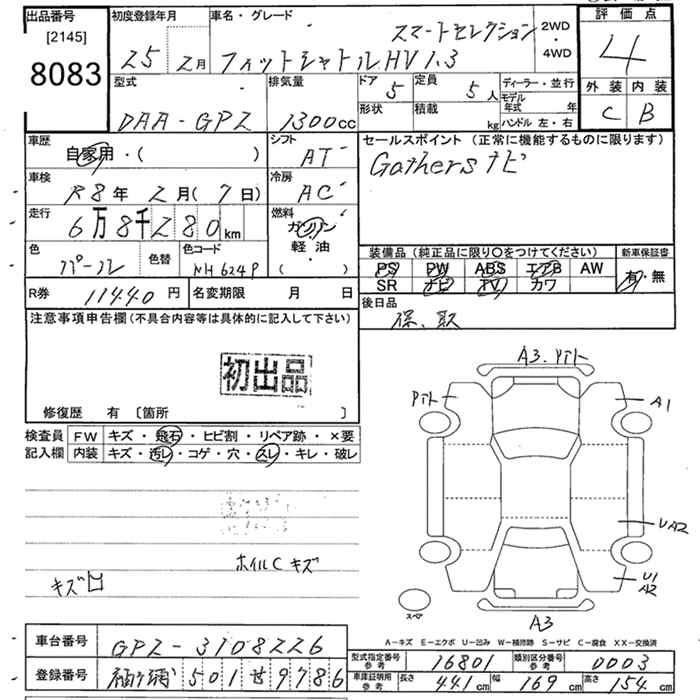 出品番号
[2145]
8083
初度登録年月
25 2月
車名・グレード
スマートセレクション
フィットシャトルHV 1.3
2WD
・
4WD
評価点
4
外装 内装
C B
型式
DAA-GP2
排気量
1300cc
ドア
5
形状
定員
5人
積載
kg
ディーラー・並行
モデル
年式 年
ハンドル 左・右
車歴
自家用・( )
シフト
AT
車検
R8年 2月(7日)
冷房
AC
走行
6万8千280km
燃料
ガソリン
軽・油
・( )
色
パール
色替
色コード
NH624P
R券 11440円
名変期限 月 日
セールスポイント(正常に機能するものに限ります)
Gathersナビ
装備品(純正品に限り〇をつけてください)
PS PW ABS エアB AW
SR ナビ TV カワ
新車保証書
有・無
後日品
保、取
注意事項申告欄(不具合内容等は具体的に記入して下さい)
初出品
修復歴 有 〔箇所 〕
検査員
記入欄
FW キズ・飛石・ヒビ割・リペア跡・×要
内装 キズ・汚レ・コゲ・穴・スレ・キレ・破レ
ホイルCキズ
キズ凹
A3.Pイト
Pイト
A1
UA2
U1
A2
A3
スペア
A-キズ E-エクボ U-凹み W-補修跡 S-サビ C-腐食 XX-交換済
車台番号 GP2-3108226
登録番号 501 9786
型式指定番号
参考
16801
類別区分番号
参考
0003
車庫証明用
参考
長さ 441cm 幅 169cm 高さ 154cm